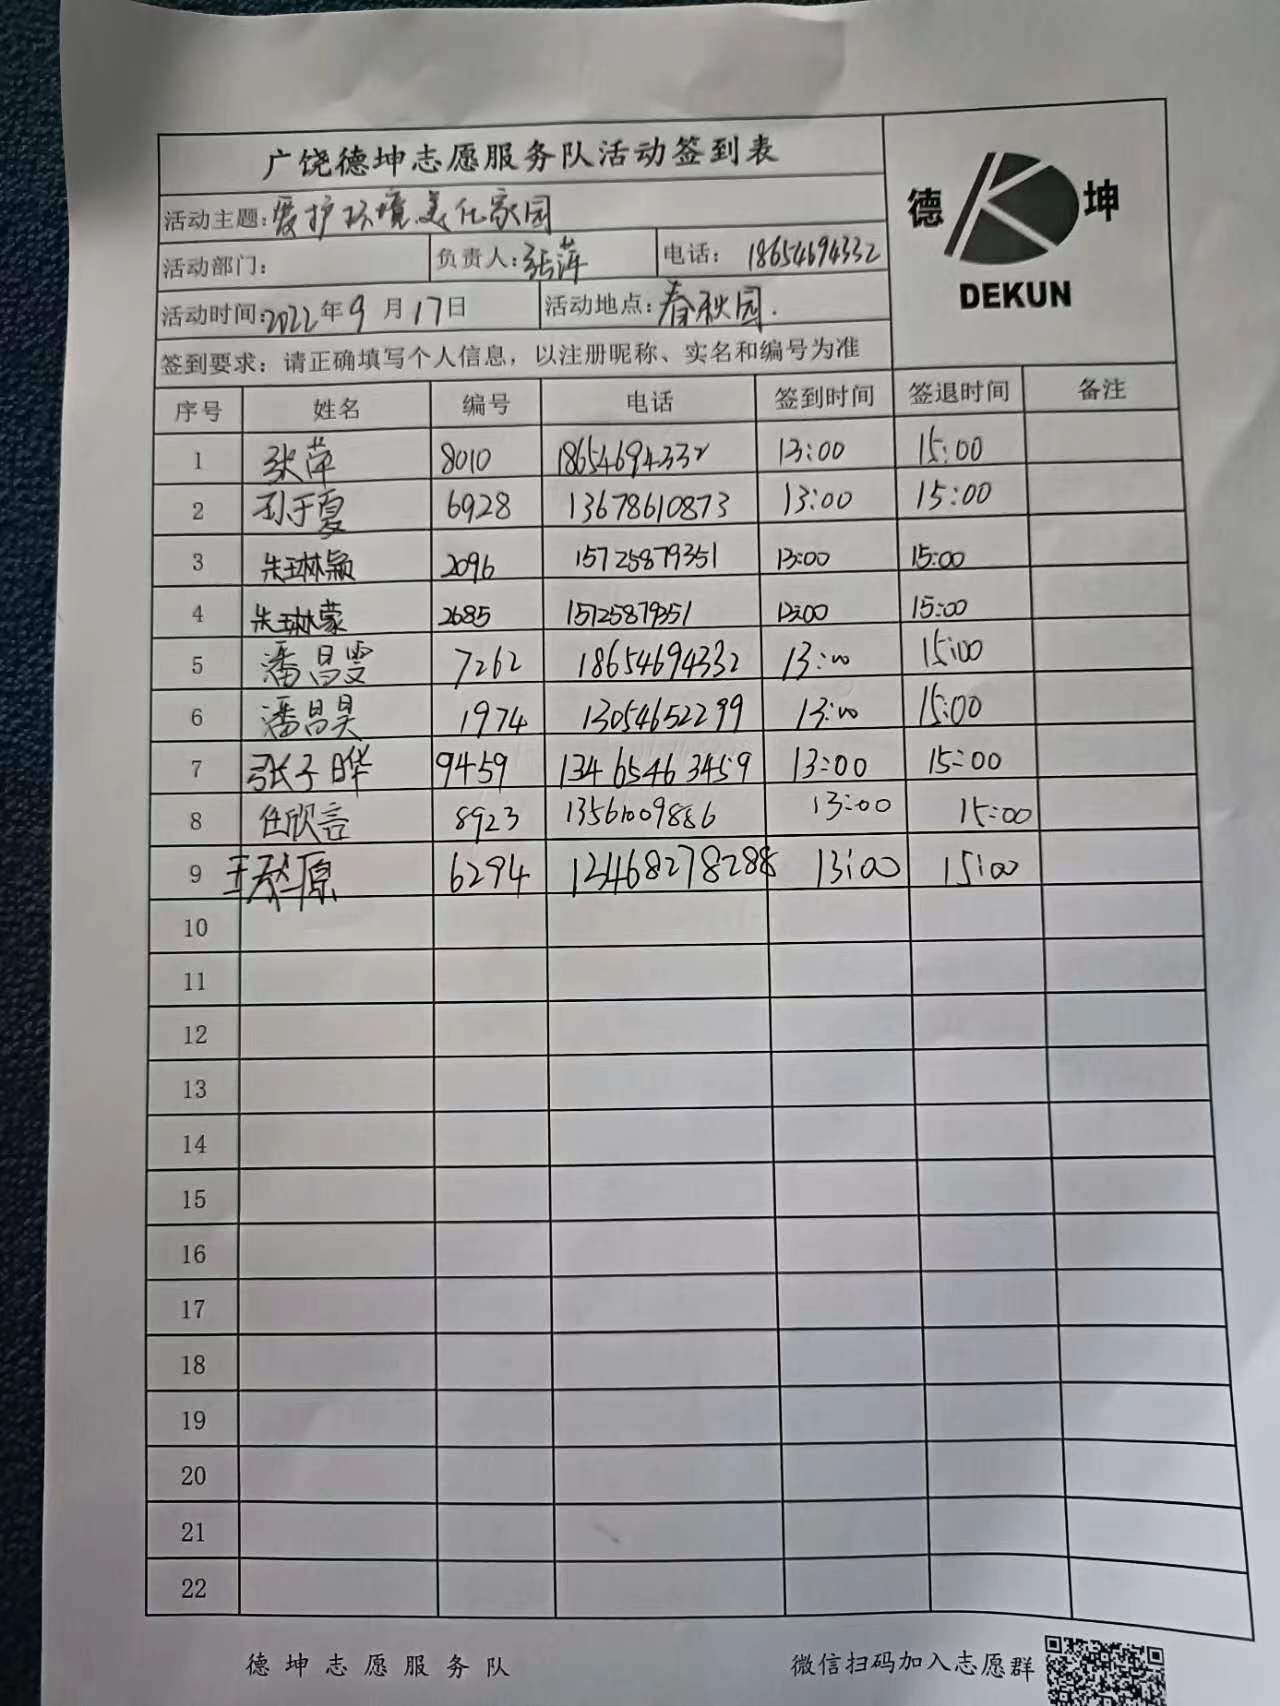 广饶德坤志愿服务队活动签到表
德 坤
DEKUN
活动主题:爱护环境美化家园
活动部门: 负责人:张萍 电话: 18654694332
活动时间:2022年9月17日 活动地点:春秋园.
签到要求：请正确填写个人信息，以注册昵称、实名和编号为准
序号 姓名 编号 电话 签到时间 签退时间 备注
1 张萍 8010 18654694332 13:00 15:00
2 孙于夏 6928 13678610873 13:00 15:00
3 朱琳颖 2096 15725879351 13:00 15:00
4 朱琳蒙 2685 15725879351 13:00 15:00
5 潘昌雯 7262 18654694332 13:00 15:00
6 潘昌昊 1974 13054652299 13:00 15:00
7 张子晔 9459 13465463459 13:00 15:00
8 任欣言 8923 13561009886 13:00 15:00
9 王 原 6294 13468278288 13:00 15:00
10
11
12
13
14
15
16
17
18
19
20
21
22
德坤志愿服务队 微信扫码加入志愿群